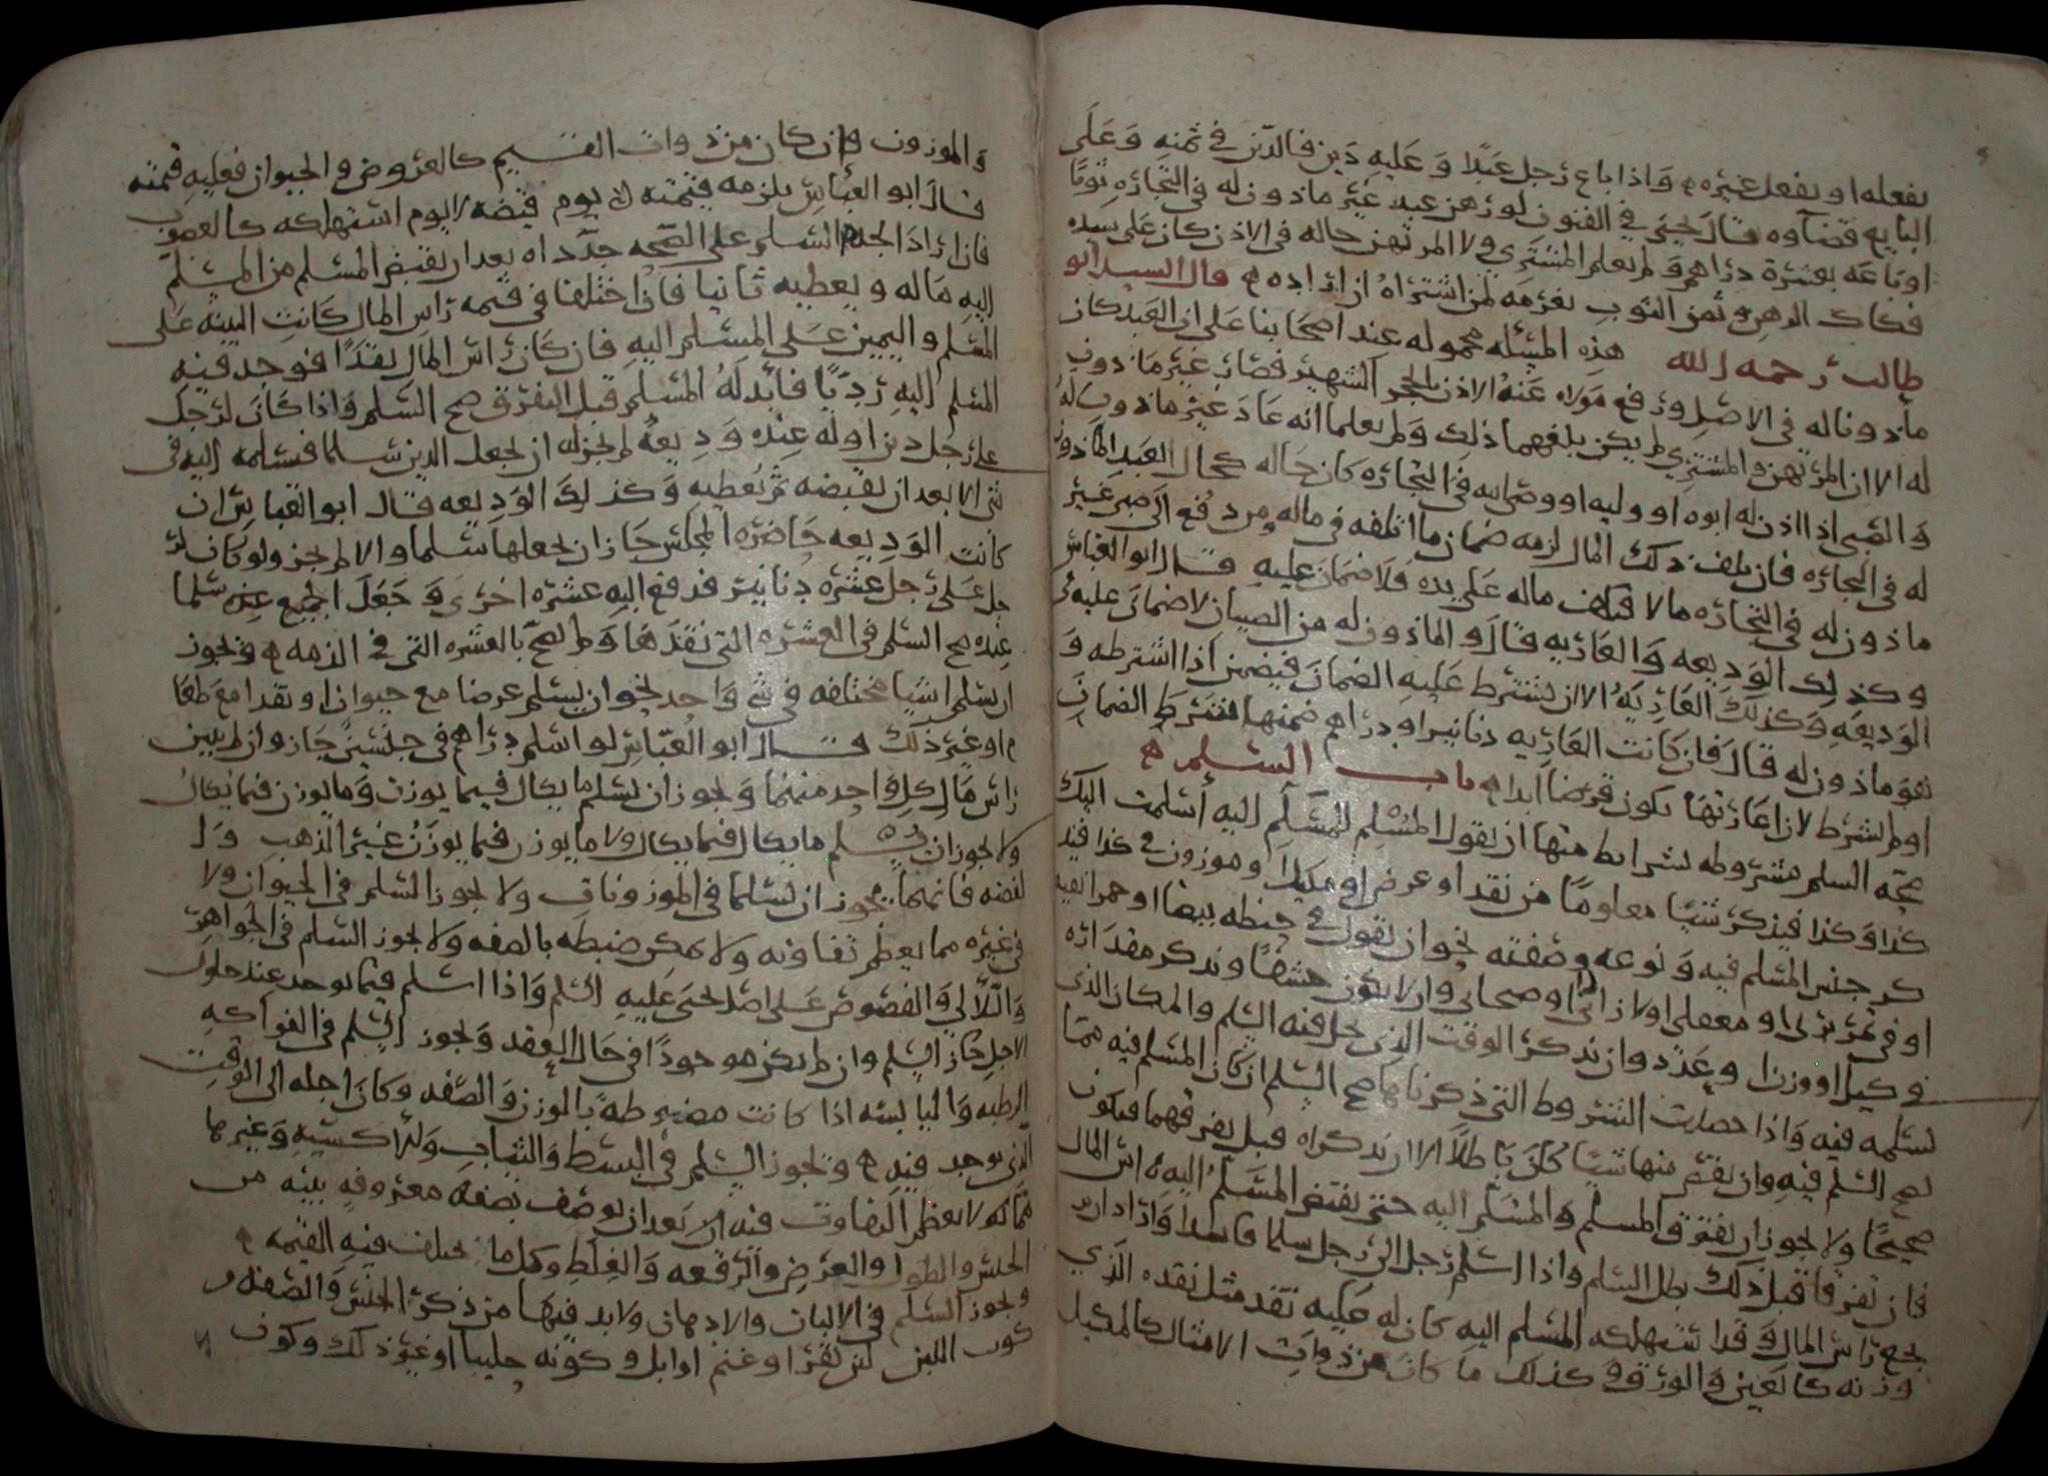 يفعله او يفعل غيره ه واذا باع رجل عبدًا وعليه دين فالدين في ثمنه وعلى
البايع قضاوه قال يحيى في الفنون لو رهن عبد غير ماذون له في التجاره ثوبًا
او باعه بعشرة دراهم ولم يعلم المشتري ولا المرتهن حاله في الاذن كان على سيده
فكاك الرهن و ثمن الثوب يغرمه لمن اشتراه ان اراده ه قال السيد ابو
طالب رحمه الله هذه المسئله محموله عند اصحابنا على ان العبد كان
ماذونا له في الاصل ورفع مولاه عنه الاذن بالحجر الشهير فصار غير ماذون
له الا ان المرتهن والمشتري لم يكن بلغهما ذلك ولم يعلما انه عاد غير ماذون له
والصبي اذا اذن له ابوه او وليه او وصى ابيه في التجاره كان حاله كحال العبد الماذون
له في التجاره فان تلف ذلك المال لزمه ضمان ما اتلفه في ماله ومن دفع الى صبي غير
ماذون له في التجاره مالا فتلف ماله على يده فلا ضمان عليه قال ابو العباس
وكذلك الوديعه والعاريه قال و الماذون له من الصبيان لا ضمان عليه في
الوديعه وكذلك العاريه الا ان يشترط عليه الضمان فيضمن اذا اشترطه و
هو ماذون له قال فان كانت العاريه دنانير او دراهم ضمنها اشترط الضمان
او لم يشرط لان اعارتها يكون قرضا ابدا ه باب السلم ه
صحه السلم مشروطه بشرايط منها ان يقول المسلِم للمسلَم اليه اسلمت اليك
كذا وكذا فيذكر شيًا معلومًا من نقد او عرض او مكيل او موزون في كذا فيذ
كر جنس المسلم فيه ونوعه وصفته نحو ان يقول في حنطه بيضا او حمرا نقيه
او في تمر برنى او معقلى او ازاذى او صيحانى وان لا يكون حشفًا ويذكر مقداره
في كيل او وزن او عدد وان يذكر الوقت الذي يحل فيه السلم والمكان الذي
يسلمه فيه واذا حصلت الشروط التي ذكرناها صح السلم ان كان المسلم فيه مما
يصح السلم فيه وان نقص منها شيًا كان باطلًا الا ان يذكراه قبل يفرقهما فيكون
صحيحًا ولا يجوز ان يفترق المسلم والمسلم اليه حتى يقبض المسلم اليه راس المال
فان تفرقا قبل ذلك بطل السلم واذا اسلم رجل الى رجل سلما فاسدا واراد ان ير
تجع راس المال وقد استهلكه المسلم اليه كان له عليه نقد مثل نقده الذي
وزنه كالعين والورق وكذلك ما كان من ذوات الامثال كالمكيل
والموزون وان كان من ذوات القيم كالعروض والحيوان فعليه قيمته
قال ابو العباس يلزمه قيمته يوم قبضه لا يوم استهلكه كالغصوب
فان ارادا السلم على الصحه جدداه بعد ان يقبض المسلم من المسلم
اليه ماله ويعطيه ثانيا فاذا اختلفا في قيمه راس المال كانت البينه على
المسلم واليمين على المسلم اليه فان كان راس المال نقدًا فوجد فيه
المسلم اليه رديًا فابدله المسلم قبل التفرق صح السلم واذا كان لرجل
على رجل دين او له عنده وديعه لم يجز له ان يجعل الدين سلما فيسلمه اليه في
شي الا بعد ان يقبضه ثم يعطيه وكذلك الوديعه قال ابو العباس ان
كانت الوديعه حاضره المجلس جاز ان يجعلها سلما والا لم يجز ولو كان لر
جل على رجل عشره دنانير فدفع اليه عشره اخرى وجعل الجميع عنده سلما
عنده صح السلم في العشره التي نقدها ولم يصح بالعشره التي في الذمه ه ويجوز
ان يسلم اشيا مختلفه في شي واحد نحو ان يسلم عرضا مع حيوان او نقدا مع طعا
م او غير ذلك قال ابو العباس لو اسلم دراهم في جنسين جاز وان لم يبين
راس مال كل واحد منهما ويجوز ان يسلم ما يكال فيما يوزن وما يوزن فيما يكال
ولا يجوز ان يسلم ما يكال فيما يكال ولا ما يوزن فيما يوزن غير الذهب وا
لفضه فانهما يجوز ان يسلما في الموزونات ولا يجوز السلم في الحيوان ولا
في غيره مما يعظم تفاوته ولا يمكن ضبطه بالصفه ولا يجوز السلم في الجواهر
واللآلي والفصوص على اصل يحيى عليه السلم واذا اسلم فيما يوجد عند حلول
الاجل جاز السلم وان لم يكن موجودًا في حال العقد ويجوز السلم في الفواكه
الرطبه واليابسه اذا كانت مضبوطه بالوزن والصفه وكان اجله الى الوقت
الذي يوجد فيه ه ويجوز السلم في البسط والثياب والاكسيه وغيرها
مما لا يعظم التفاوت فيه الا بعد ان يوصف بصفه معروفه بينه من
الجنس والطول والعرض والرقه والغلظ وكل ما يختلف فيه القيمه ه
ويجوز السلم في الالبان والادهان ولا بد فيها من ذكر الجنس والصفه و
كون اللبن لبن بقر او غنم او ابل و كونه حليبا او غير ذلك وكون